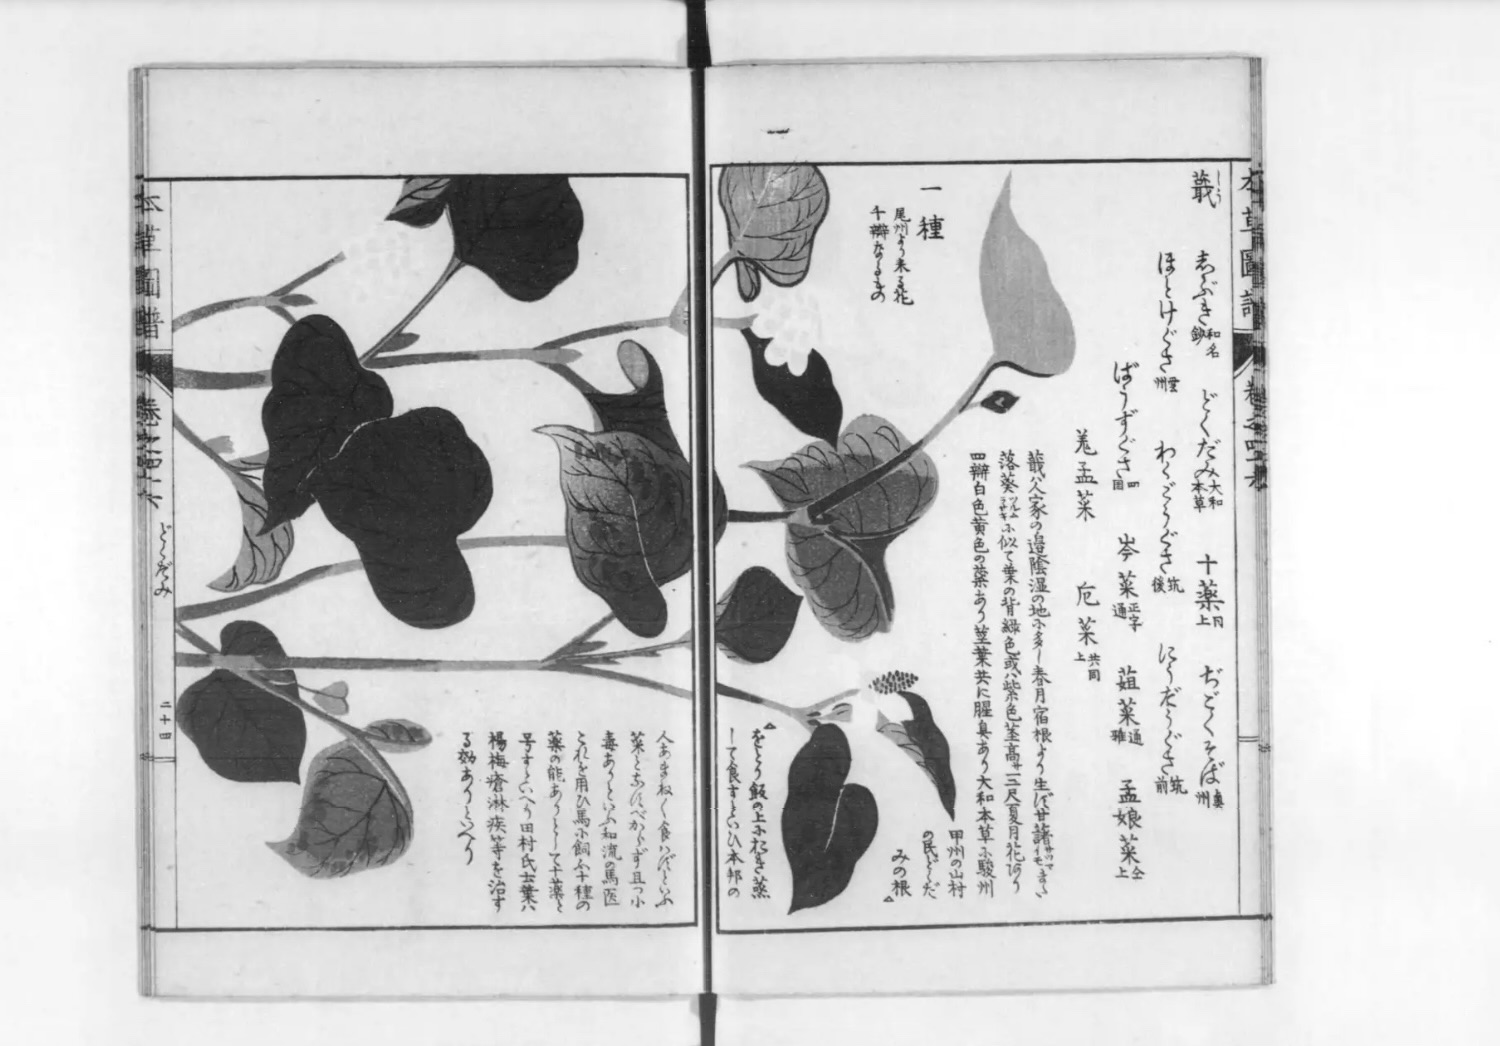 蕺 しう
志ぶき 和名鈔 どくだみ 大和本草 十薬 同上 ぢごくそば 奥州
ほとけぐさ 豊州 わくどうぐさ 筑後 にうだうぐさ 筑前
ばうずぐさ 四国 岑菜 正字通 葅菜 通雅 孟娘菜 仝上
羗孟菜 卮菜 共同上
蕺ハ人家の邉陰湿の地ニ多し春月宿根より生ず甘藷
落葵ニ似て葉の背緑色或ハ紫色茎高サ二三尺夏月花あり
四瓣白色黄色の蘂あり茎葉共に腥臭あり大和本草ニ駿州
甲州の山村
の民どくだ
みの根
一種
尾州より来る花
千瓣なるもの
をとり飯の上におき蒸
して食すといひ本邦の
人あまねく食ハずといふ
毒ありといふ和流の馬医
これを用ひ馬ニ飼ふ十種の
薬の能ありとして十薬と
号すといへり田村氏云葉ハ
楊梅瘡淋疾等を治す
る効ありといへり
本草圖譜
どくだみ
二十四